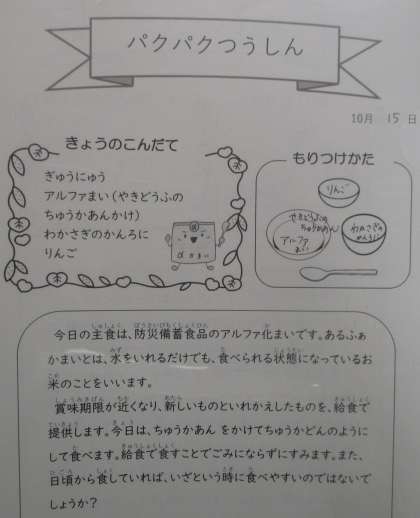 パクパクつうしん
10月 15 日
きょうのこんだて
ぎゅうにゅう
アルファまい（やきどうふの
ちゅうかあんかけ）
わかさぎのかんろに
りんご
もりつけかた
りんご
やきどうふの
ちゅうかあん
アルファ
まい
わかさぎの
かんろに
今日の主食は、防災備蓄食品のアルファ化まいです。あるふぁ
かまいとは、水をいれるだけでも、食べられる状態になっているお
米のことをいいます。
賞味期限が近くなり、新しいものといれかえしたものを、給食で
提供します。今日は、ちゅうかあん をかけてちゅうかどんのように
して食べます。給食で食すことでごみにならずにすみます。また、
日頃から食していれば、いざという時に食べやすいのではないで
しょうか？